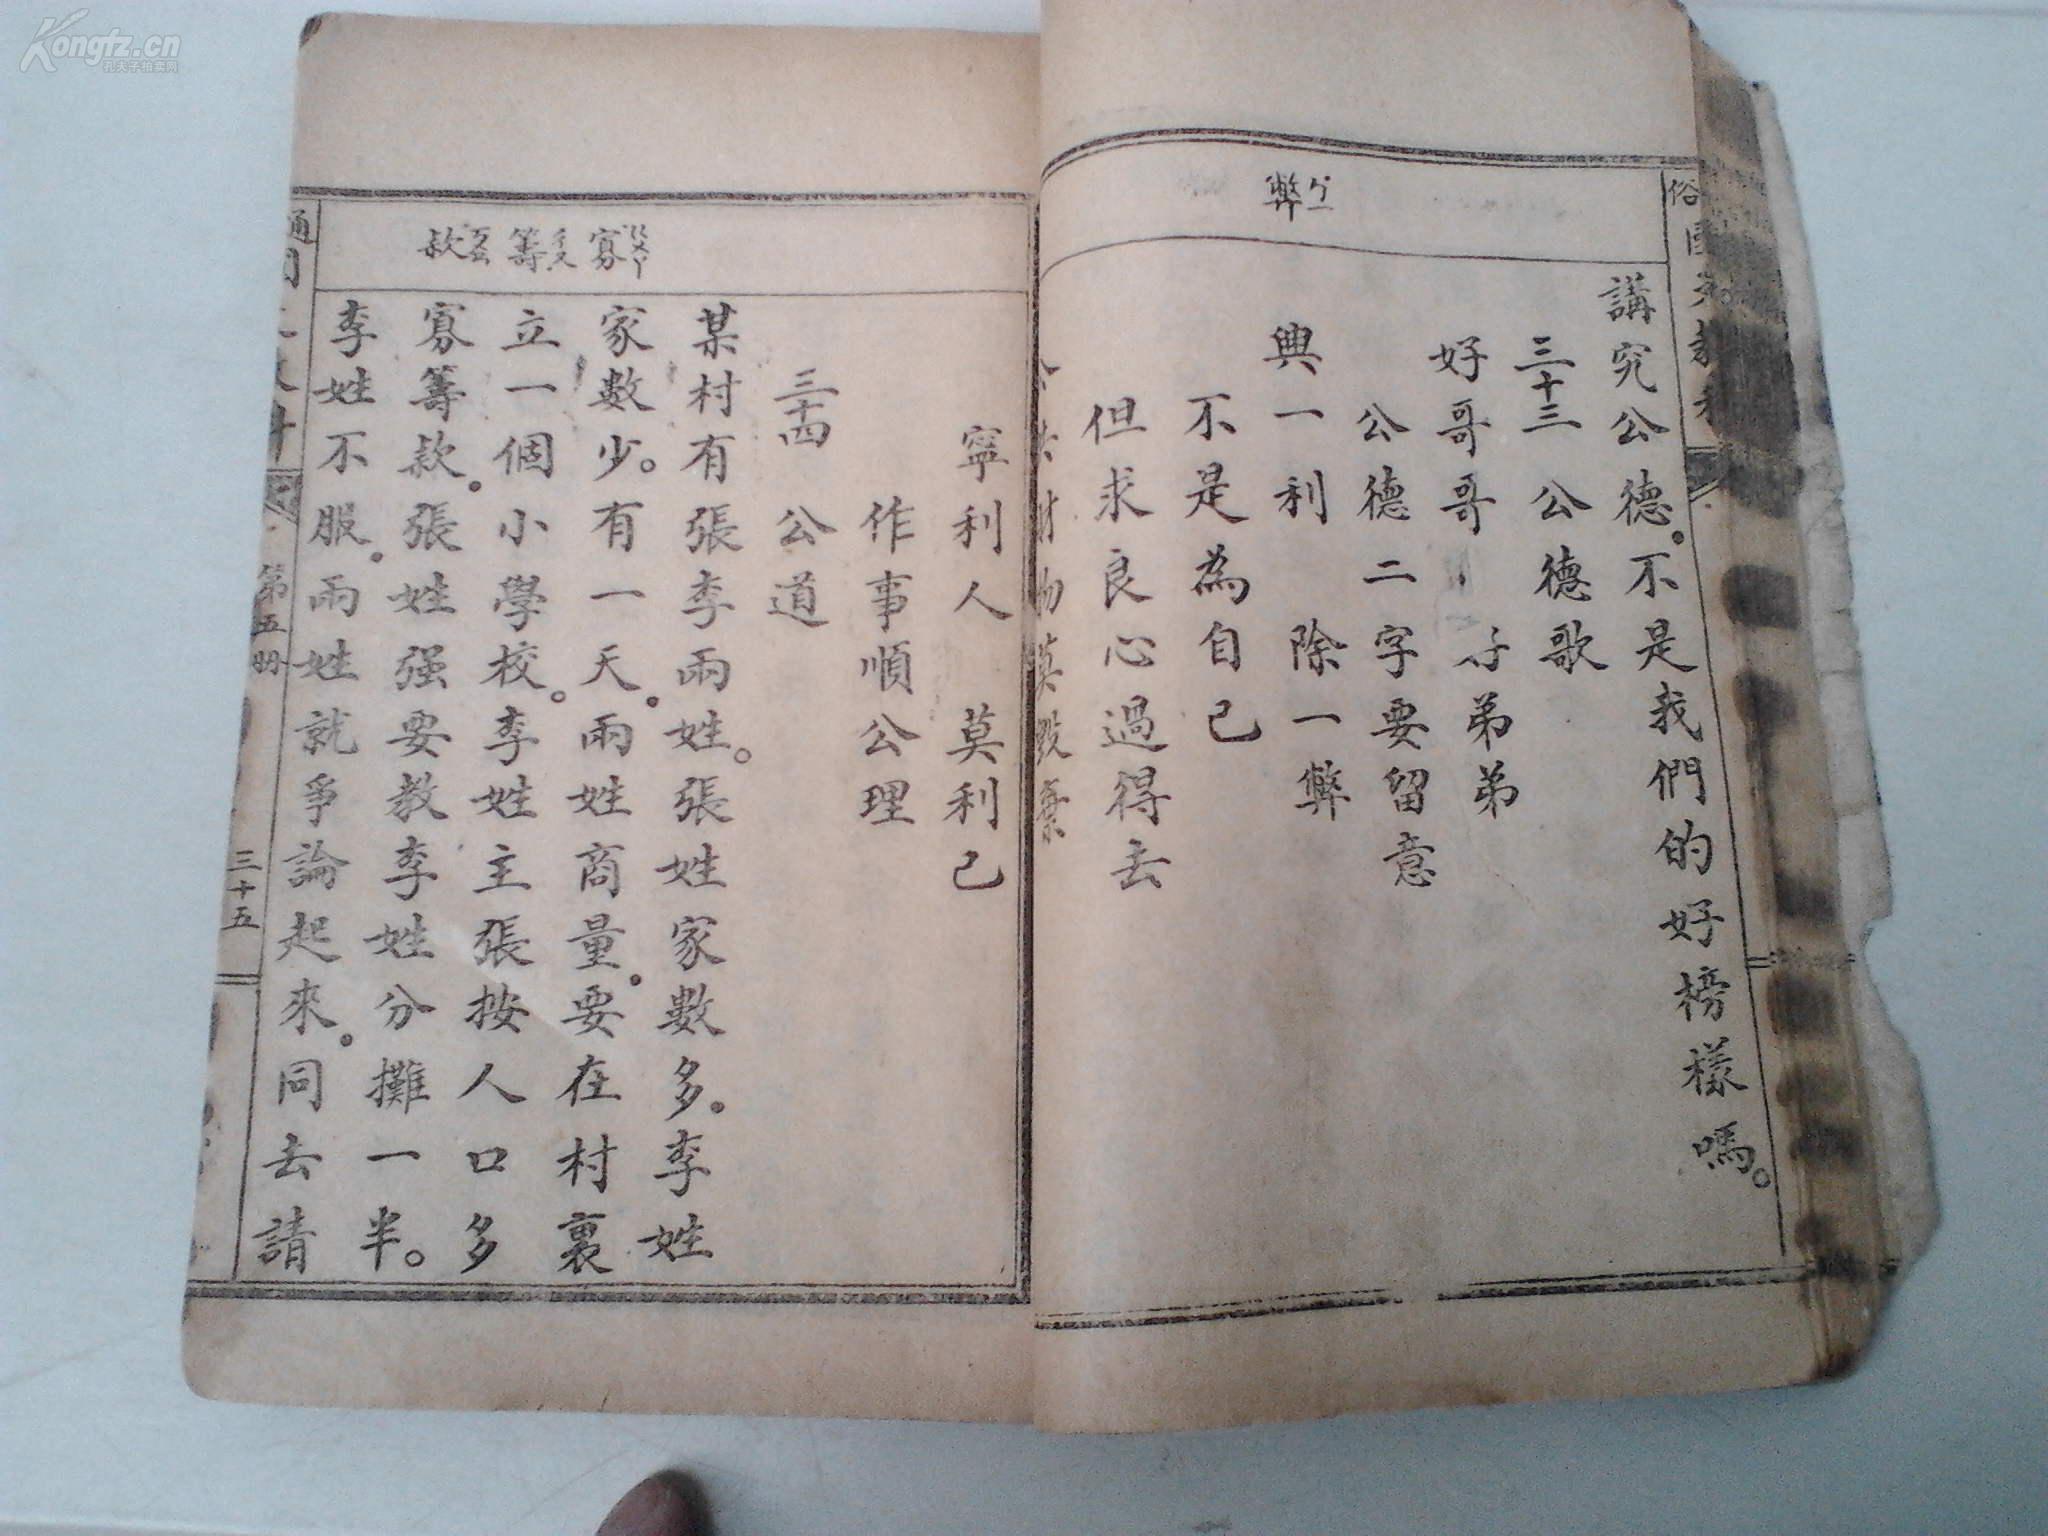 弊
講究公德。不是我們的好榜樣嗎。
三十三 公德歌
好哥哥 好弟弟
公德二字要留意
興一利 除一弊
不是為自己
但求良心過得去
公共財物莫毀棄
寡 籌 款
寧利人 莫利己
作事順公理
三十四 公道
某村有張李兩姓。張姓家數多。李姓
家數少。有一天。兩姓商量。要在村裏
立一個小學校。李姓主張按人口多
寡籌款。張姓强要教李姓分攤一半。
李姓不服。兩姓就爭論起來。同去請
第五册
三十五
Kongfz.cn
孔夫子拍卖网